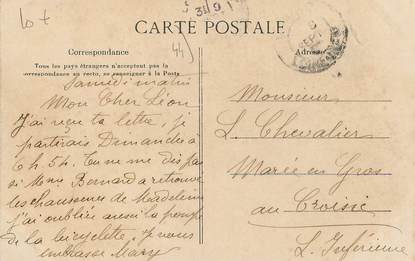 CARTE POSTALE
Correspondance
Tous les pays étrangers n'acceptent pas la
correspondance au recto, se renseigner à la Poste
Adresse
Samedi matin
Mon Cher Léon
J'ai reçu ta lettre, je
partirais Dimanche à
6h 54. Tu ne me dis pas
si Mme Bernard a retrouvé
les chaussures de Madeleine
j'ai oublié aussi la pompe
de la bicyclette, Je vous
embrasse Mary
Monsieur
L. Chevalier
Marée en Gros
au Croisic
L. Inférieure